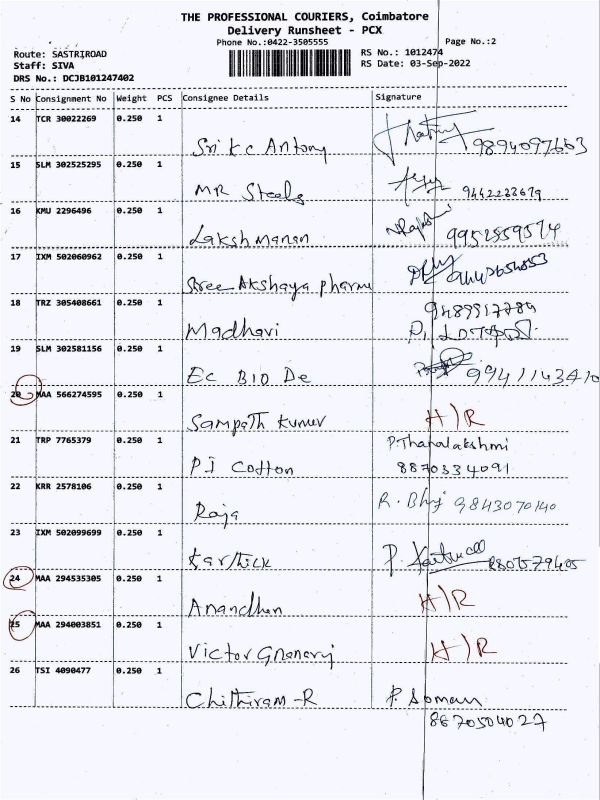 THE PROFESSIONAL COURIERS, Coimbatore
Delivery Runsheet - PCX
Phone No.:0422-3505555
Page No.:2
Route: SASTRIROAD
RS No.: 1012474
Staff: SIVA
RS Date: 03-Sep-2022
DRS No.: DCJB101247402
S No Consignment No Weight PCS Consignee Details Signature
14 TCR 30022269 0.250 1
Sri K C Antony 9894097663
15 SLM 302525295 0.250 1
MR Steels 9442233679
16 KMU 2296496 0.250 1
Lakshmanan 9952859574
17 IXM 502060962 0.250 1
Sree Akshaya pharma
18 TRZ 305408661 0.250 1
Madhavi
19 SLM 302581156 0.250 1
Ec BIO De 9941143410
20 MAA 566274595 0.250 1
Sampath kumar H/R
21 TRP 7765379 0.250 1 P.Thanalakshmi
PJ Cotton 8870334091
22 KRR 2578106 0.250 1
Raja 9843070140
23 IXM 502099699 0.250 1
Karthick
24 MAA 294535305 0.250 1
Anandhan H/R
25 MAA 294003851 0.250 1
Victor Gnanaraj H/R
26 TSI 4090477 0.250 1
Chithiram-R P. Soman
8870504027